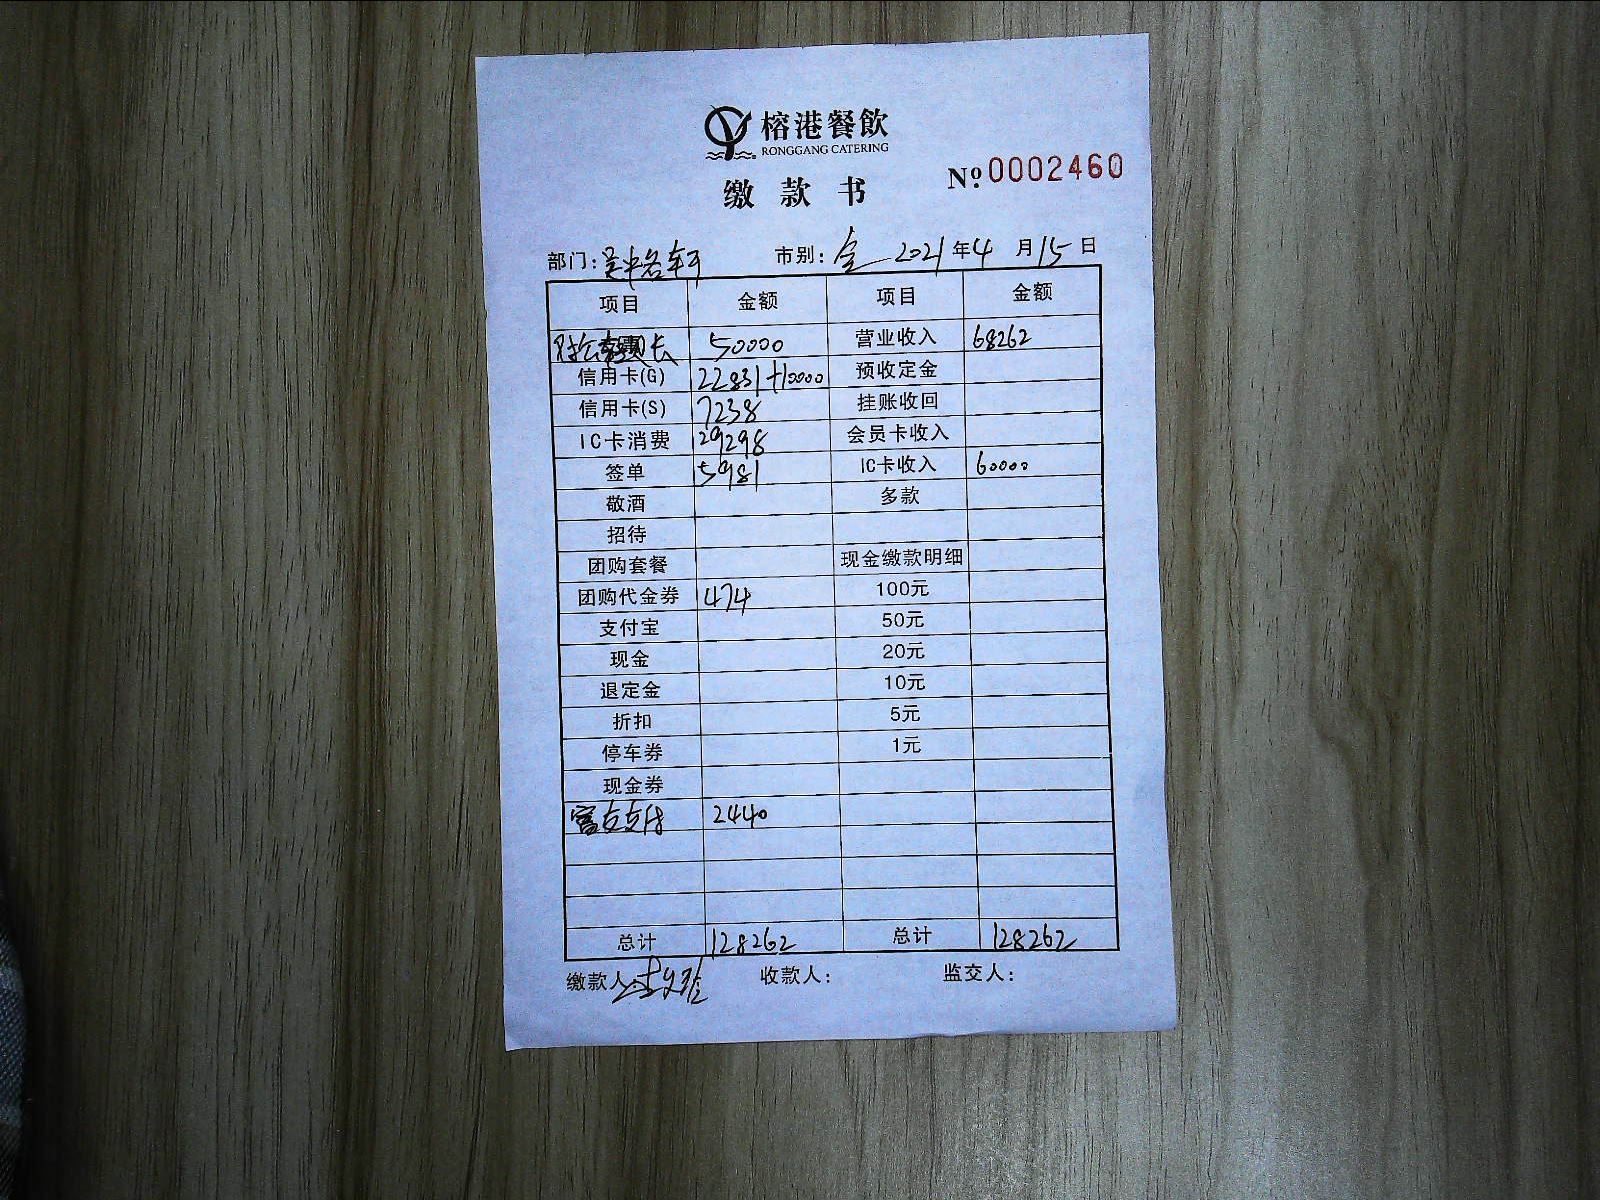 榕港餐飲
RONGGANG CATERING
缴款书
№ 0002460
部门: 市别: 全 2021年4月15日
项目 金额 项目 金额
50000 营业收入 68262
信用卡(G) 22831+10000 预收定金
信用卡(S) 7238 挂账收回
IC卡消费 29298 会员卡收入
签单 5981 IC卡收入 60000
敬酒 多款
招待
团购套餐 现金缴款明细
团购代金券 474 100元
支付宝 50元
现金 20元
退定金 10元
折扣 5元
停车券 1元
现金券
支付 2440
总计 128262 总计 128262
缴款人: 收款人: 监交人: